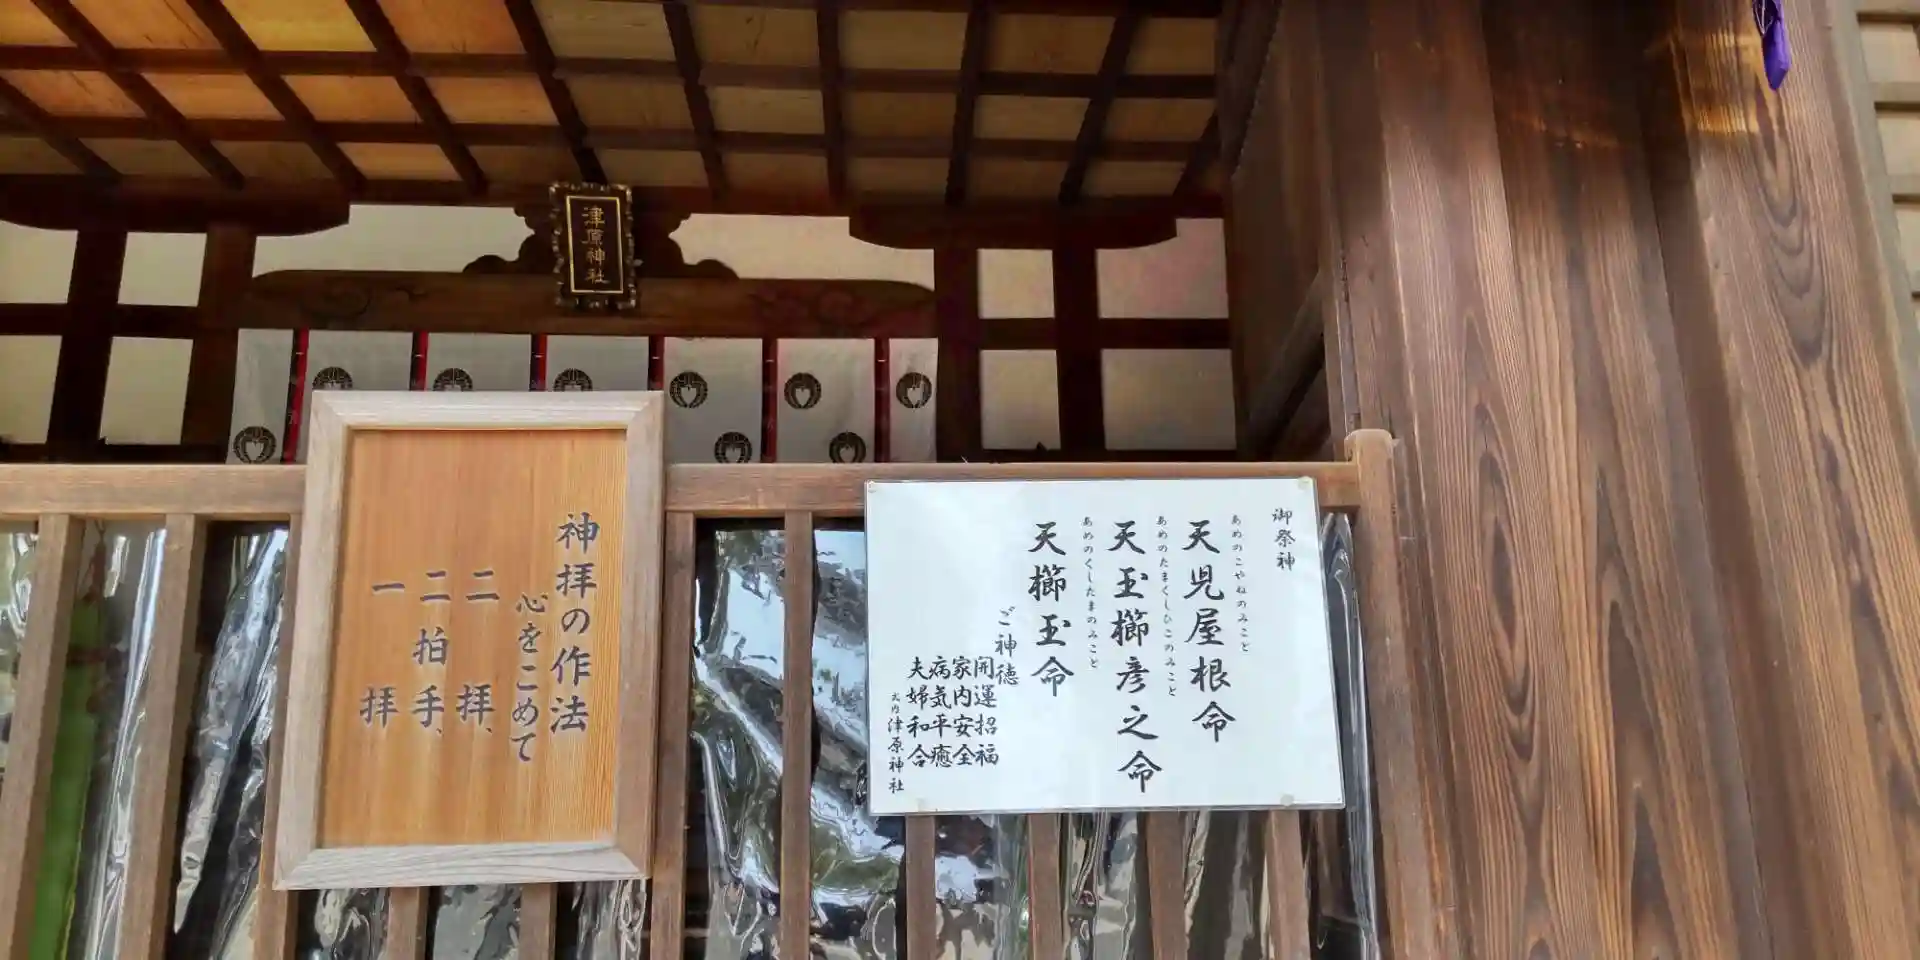 津原神社
神拝の作法
心をこめて
二拝、
二拍手、
一拝
御祭神
あめのこやねのみこと
天児屋根命
あめのたまくしひこのみこと
天玉櫛彦之命
あめのくしたまのみこと
天櫛玉命
ご神徳
開運招福
家内安全
病気平癒
夫婦和合
津原神社